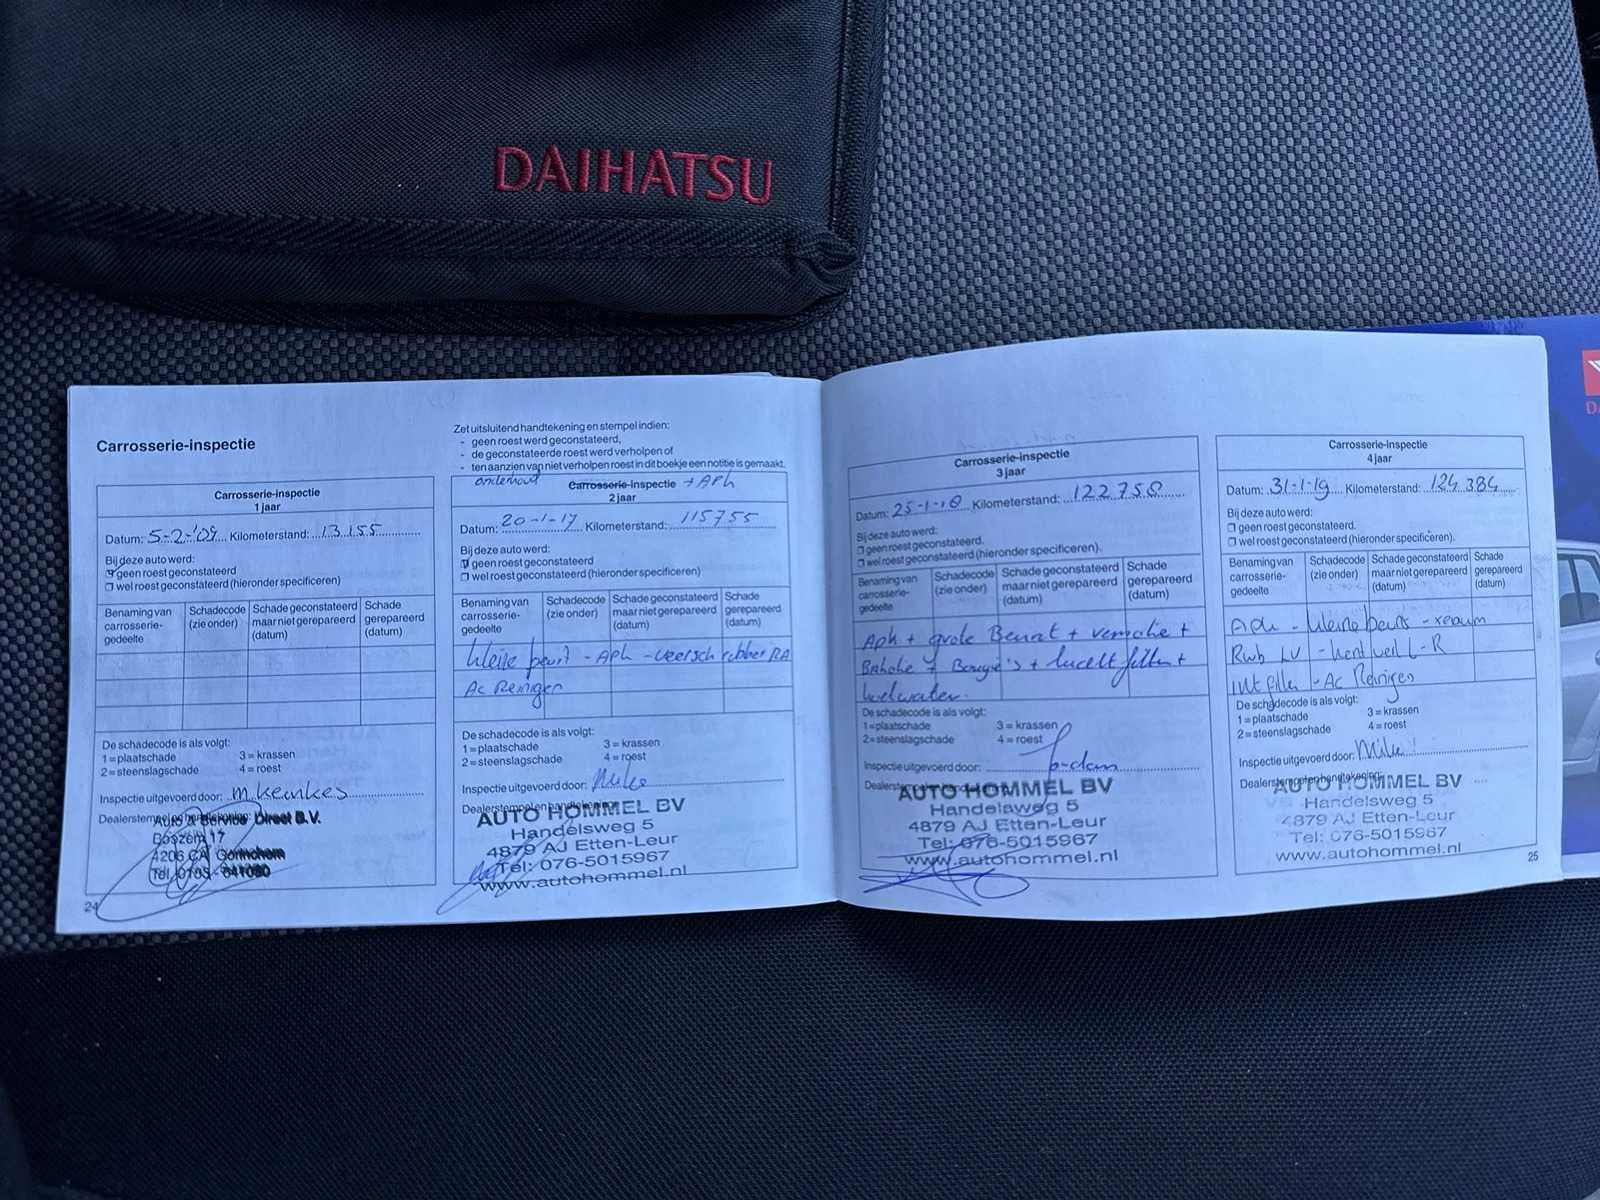 DAIHATSU
Carrosserie-inspectie
Zet uitsluitend handtekening en stempel indien:
- geen roest werd geconstateerd,
- de geconstateerde roest werd verholpen of
- ten aanzien van niet verholpen roest in dit boekje een notitie is gemaakt.
Carrosserie-inspectie
1 jaar
Datum: 5-2-'09 Kilometerstand: 13155
Bij deze auto werd:
geen roest geconstateerd
wel roest geconstateerd (hieronder specificeren)
Benaming van carrosserie-gedeelte
Schadecode (zie onder)
Schade geconstateerd maar niet gerepareerd (datum)
Schade gerepareerd (datum)
De schadecode is als volgt:
1 = plaatschade 3 = krassen
2 = steenslagschade 4 = roest
Inspectie uitgevoerd door: m keukes
Dealerstempel en handtekening:
Auto & Service Direct B.V.
4206 CA Gorinchem
24
onderhoud
Carrosserie-inspectie + APk
2 jaar
Datum: 20-1-17 Kilometerstand: 115755
Bij deze auto werd:
geen roest geconstateerd
wel roest geconstateerd (hieronder specificeren)
Benaming van carrosserie-gedeelte
Schadecode (zie onder)
Schade geconstateerd maar niet gerepareerd (datum)
Schade gerepareerd (datum)
kleine beurt - APk - veersch rubber RA
Ac Reinigen
De schadecode is als volgt:
1 = plaatschade 3 = krassen
2 = steenslagschade 4 = roest
Inspectie uitgevoerd door: Mike
Dealerstempel en handtekening:
AUTO HOMMEL BV
Handelsweg 5
4879 AJ Etten-Leur
Tel: 076-5015967
www.autohommel.nl
Carrosserie-inspectie
3 jaar
Datum: 25-1-18 Kilometerstand: 122758
Bij deze auto werd:
geen roest geconstateerd.
wel roest geconstateerd (hieronder specificeren).
Benaming van carrosserie-gedeelte
Schadecode (zie onder)
Schade geconstateerd maar niet gerepareerd (datum)
Schade gerepareerd (datum)
Apk + grote Beurt +
+ Bougie's + lucht filter +
koelwater.
De schadecode is als volgt:
1 = plaatschade 3 = krassen
2 = steenslagschade 4 = roest
Inspectie uitgevoerd door:
AUTO HOMMEL BV
Handelsweg 5
4879 AJ Etten-Leur
Tel: 076-5015967
www.autohommel.nl
Carrosserie-inspectie
4 jaar
Datum: 31-1-19 Kilometerstand: 124384
Bij deze auto werd:
geen roest geconstateerd.
wel roest geconstateerd (hieronder specificeren).
Benaming van carrosserie-gedeelte
Schadecode (zie onder)
Schade geconstateerd maar niet gerepareerd (datum)
Schade gerepareerd (datum)
APk - kleine beurt -
Rwb LV - L-R
Int filter - Ac Reinigen
De schadecode is als volgt:
1 = plaatschade 3 = krassen
2 = steenslagschade 4 = roest
Inspectie uitgevoerd door: Mike
Dealerstempel en handtekening:
AUTO HOMMEL BV
Handelsweg 5
4879 AJ Etten-Leur
Tel: 076-5015967
www.autohommel.nl
25